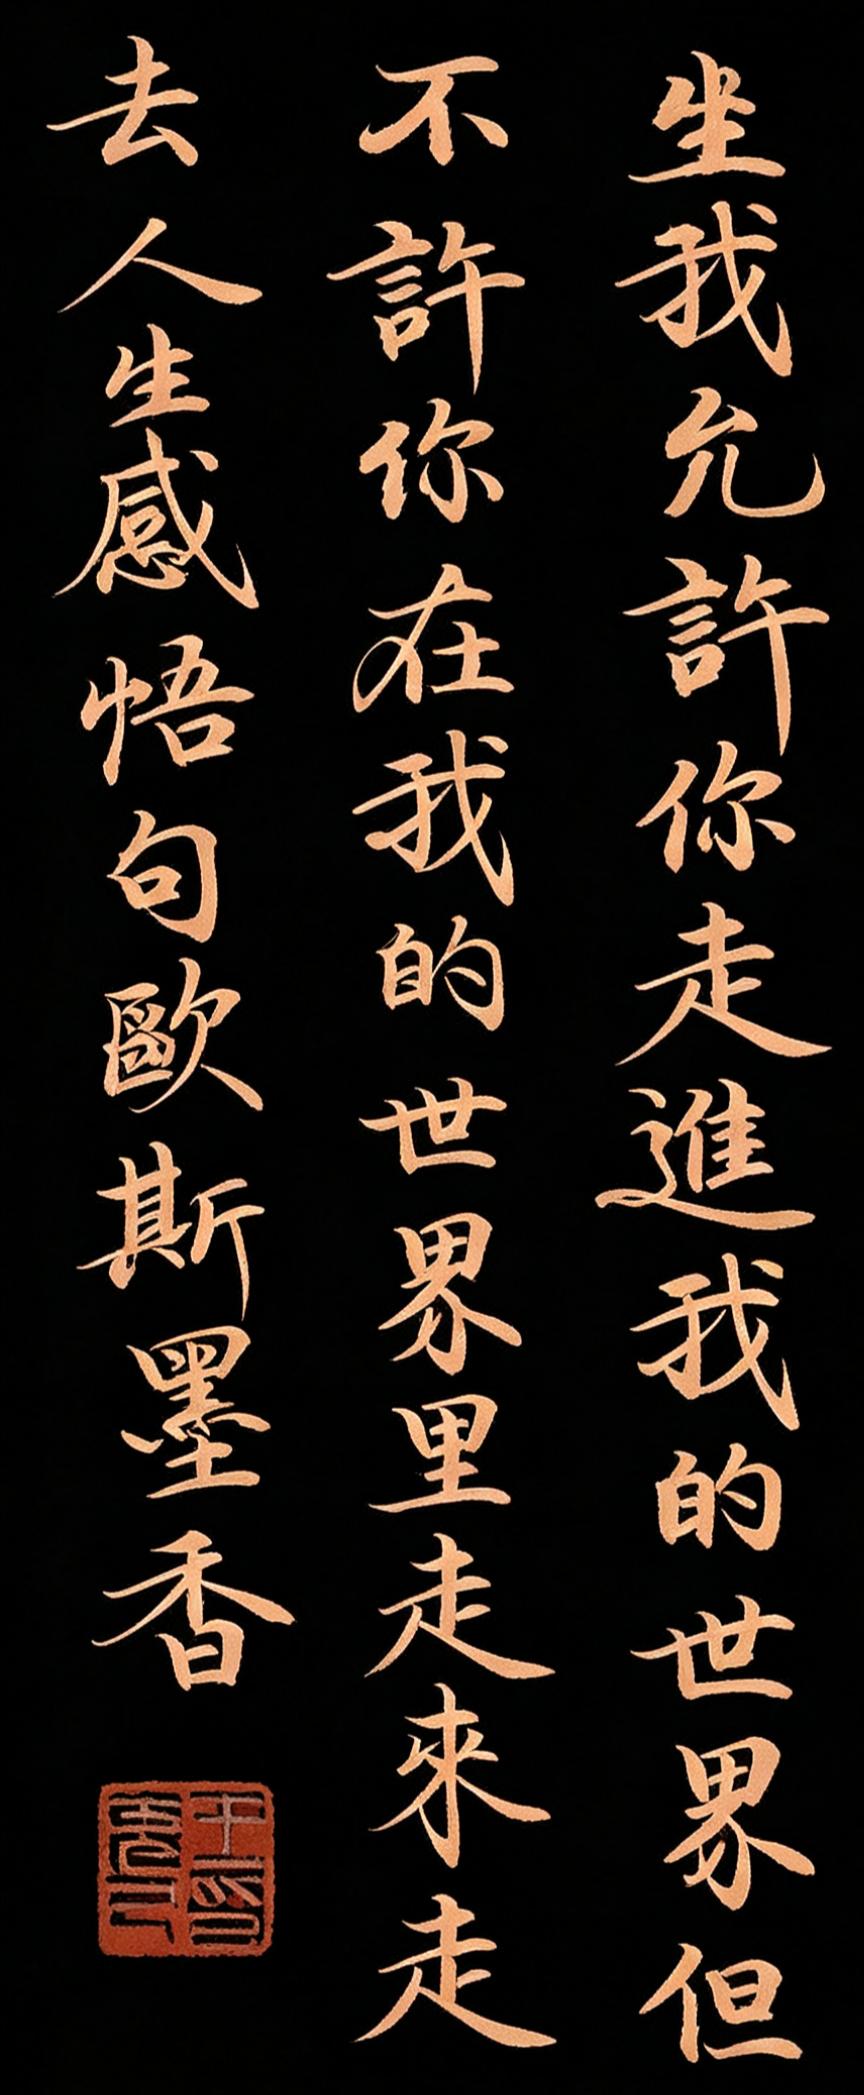 坐我允許你走進我的世界但
不許你在我的世界里走來走
去人生感悟句歐斯墨香